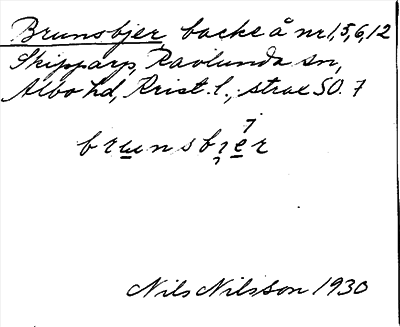 Brunsbjer, backe å nr 1,5,6,12
Skipparp, Ravlunda sn,
Albo hd, Krist. l., strax SO. 7
7
brunsbjer
Nils Nilsson 1930